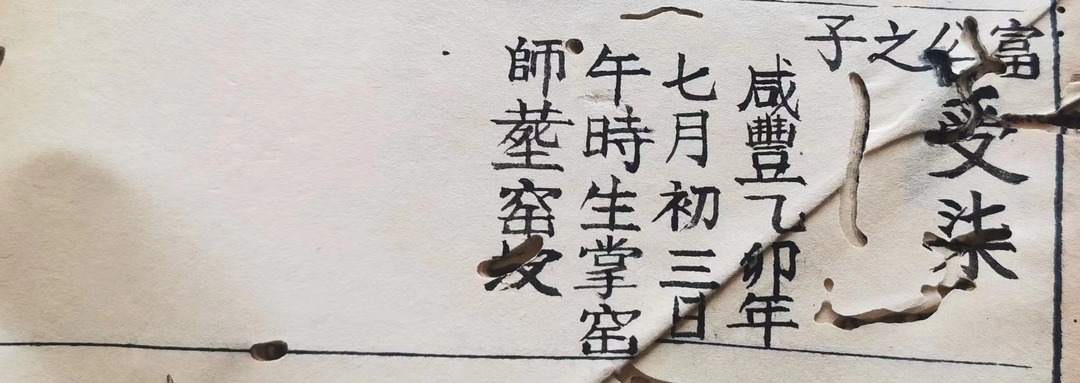 富公之子
受柒
咸豐乙卯年
七月初三日
午時生掌窑
師塟窑坟